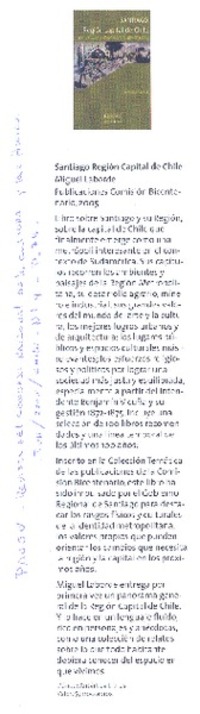 SANTIAGO
Región Capital de Chile
Santiago Región Capital de Chile
Miguel Laborde
Publicaciones Comisión Bicente-
nario, 2005
Libro sobre Santiago y su Región,
sobre la capital de Chile que
finalmente emerge como una
metrópoli interesante en el con-
texto de Sudamérica. Sus capítu-
los recorren los ambientes y
paisajes de la Región Metropoli-
tana, su desarrollo agrario, mine-
ro e industrial, sus grandes valo-
res del mundo del arte y la cultu-
ra, los mejores logros urbanos y
de arquitectura, los lugares pú-
blicos y espacios culturales más
relevantes, los esfuerzos religio-
sos y políticos por lograr una
sociedad más justa y equilibrada,
especialmente a partir del Inten-
dente Benjamín Vicuña y su
gestión 1872-1875. Incluye una
selección de 100 libros recomen-
dados y una línea temporal de
los últimos 100 años.
Inscrito en la Colección Temática
de las publicaciones de la Comi-
sión Bicentenario, este libro ha
sido impulsado por el Gobierno
Regional de Santiago para desta-
car los rasgos físicos y culturales
de la identidad metropolitana,
los valores propios que pueden
orientar los cambios que necesita
la región y la capital en los próxi-
mos años.
Miguel Laborde entrega por
primera vez un panorama gene-
ral de la Región Capital de Chile.
Y lo hace en un lenguaje fluido,
rico en personajes y anécdotas,
como una colección de relatos
sobre lo que todo habitante
debiera conocer del espacio en
que vivimos.